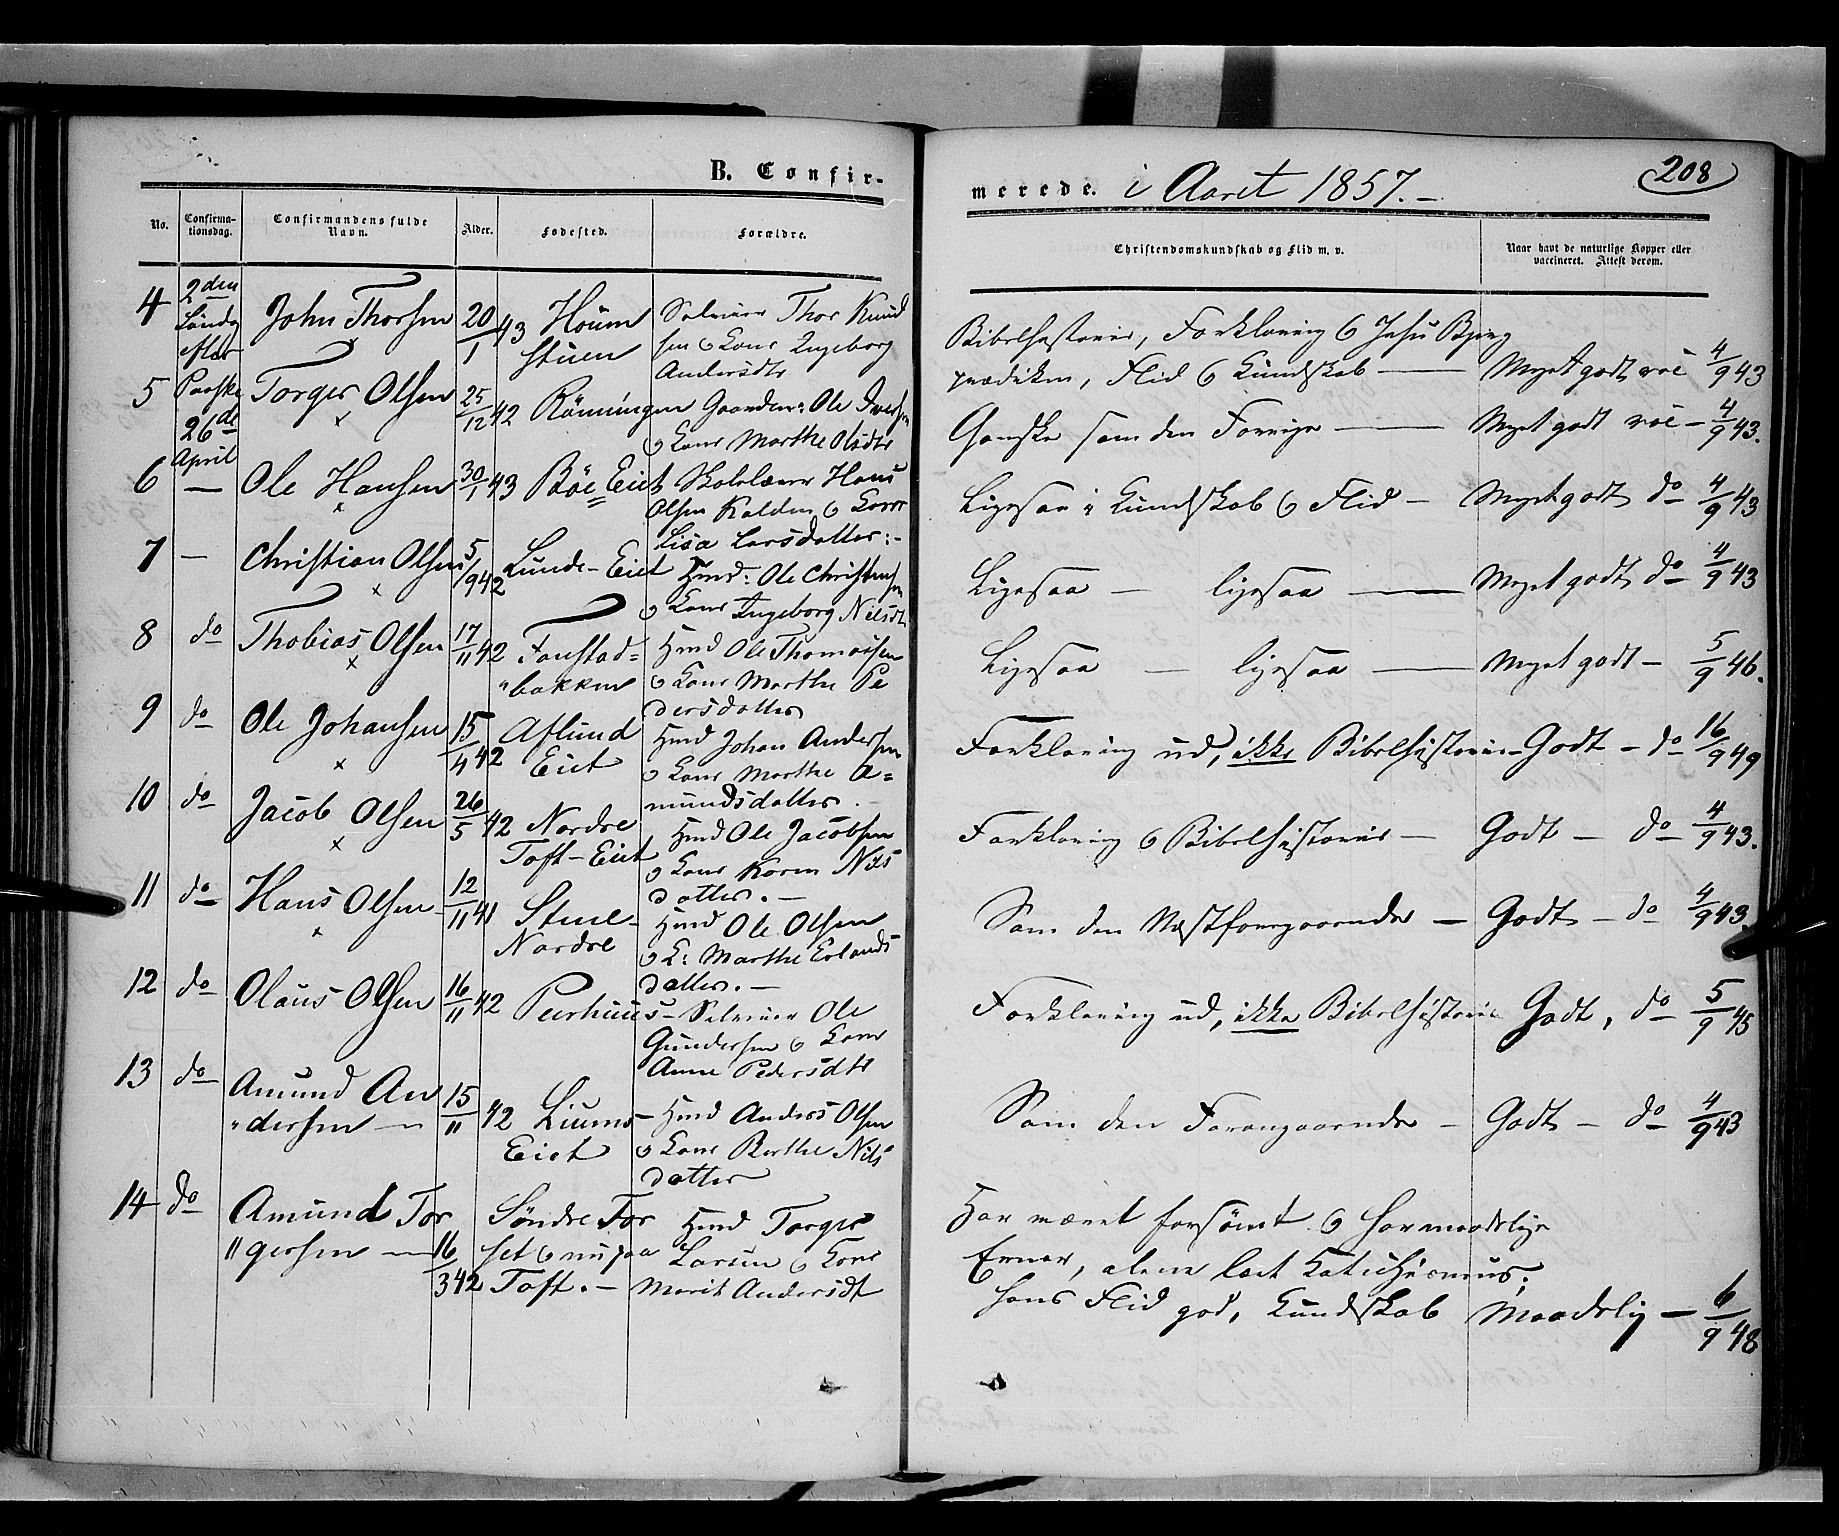 B. Confir-
merede. i Aaret 1857.-
208
No.
Confirma-
tionsdag.
Confirmandens fulde
Navn.
Alder.
Fødested.
Forældre.
Christendomskundskab og Flid m. v.
Naar havt de naturlige Kopper eller
vaccineret. Attest derom.
4 2den Søndg efter John Thorsen 20/1 43 Houm
stuen
Selveier Thor Knud
sen o Kone Ingeborg
Andersdtr
Bibelhistorie, Forklaring o Jesu Bjerg
prædiken, Flid o Kundskab — Meget godt vac 4/9 43
5 Paaske 26de April Torger Olsen 25/12 42 Rönningen Gaardm: Ole Iversen
o Kone Marthe Olsdtr
Ganske som den Forrige — Meget godt vac - 4/9 43.
6 — Ole Hansen 30/1 43 Böe Eiet Skolelærer Hans
Olsen Kalden o Kone
Lisa Larsdatter:-
Ligesaa i Kundskab o Flid - Meget godt do 4/9 43
7 — Christian Olsen 5/9 42 Lunde-Eiet Hmd: Ole Christensen
o Kone Ingeborg Nilsdt
Ligesaa — ligesaa — Meget godt do 4/9 43
8 do Thobias Olsen 17/11 42 Fonstad=
"bakken
Hmd Ole Thomassen
o Kone Marthe Pe
dersdatter
Ligesaa — ligesaa — Meget godt - 5/9 46.
9 do Ole Johansen 15/4 42 Aflund
Eiet
Hmd Johan Andersen
o Kone Marthe A=
mundsdatter.
Forklaring ud, ikke Bibelhistorie - Godt - do 16/9 49
10 do Jacob Olsen 26/5 42 Nordre
Toft-Eiet
Hmd Ole Jacobsen
o Kone Karen Nils
datter.-
Forklaring o Bibelhistorie - Godt - do 4/9 43.
11 do Hans Olsen 12/11 41 Stuel-
Nordre
Hmd Ole Olsen
o K: Marthe Erlands
datter.-
Som den Næstforegaaende - Godt - do 4/9 43.
12 do Olaus Olsen 16/11 42 Peerhuus- Selveier Ole
Gundersen o Kone
Anne Pedersdtr
Forklaring ud, ikke Bibelhistorie Godt, do 5/9 45
13 do Amund An
"dersen - 15/11 42 Liums-
Eiet
Hmd Anders Olsen
o Kone Berthe Nils
datter
Som den Foregaaende - Godt - do 4/9 43
14 do Amund Tor
"gersen - 16/3 42 Söndre For
set o nu paa
Toft.-
Hmd Torger
Larsen o Kone
Marit Andersdt
Har været forsömt o har maadelige
Evner, alene læst Katechismus;
hans Flid god, Kundskab Maadelig - 6/9 48